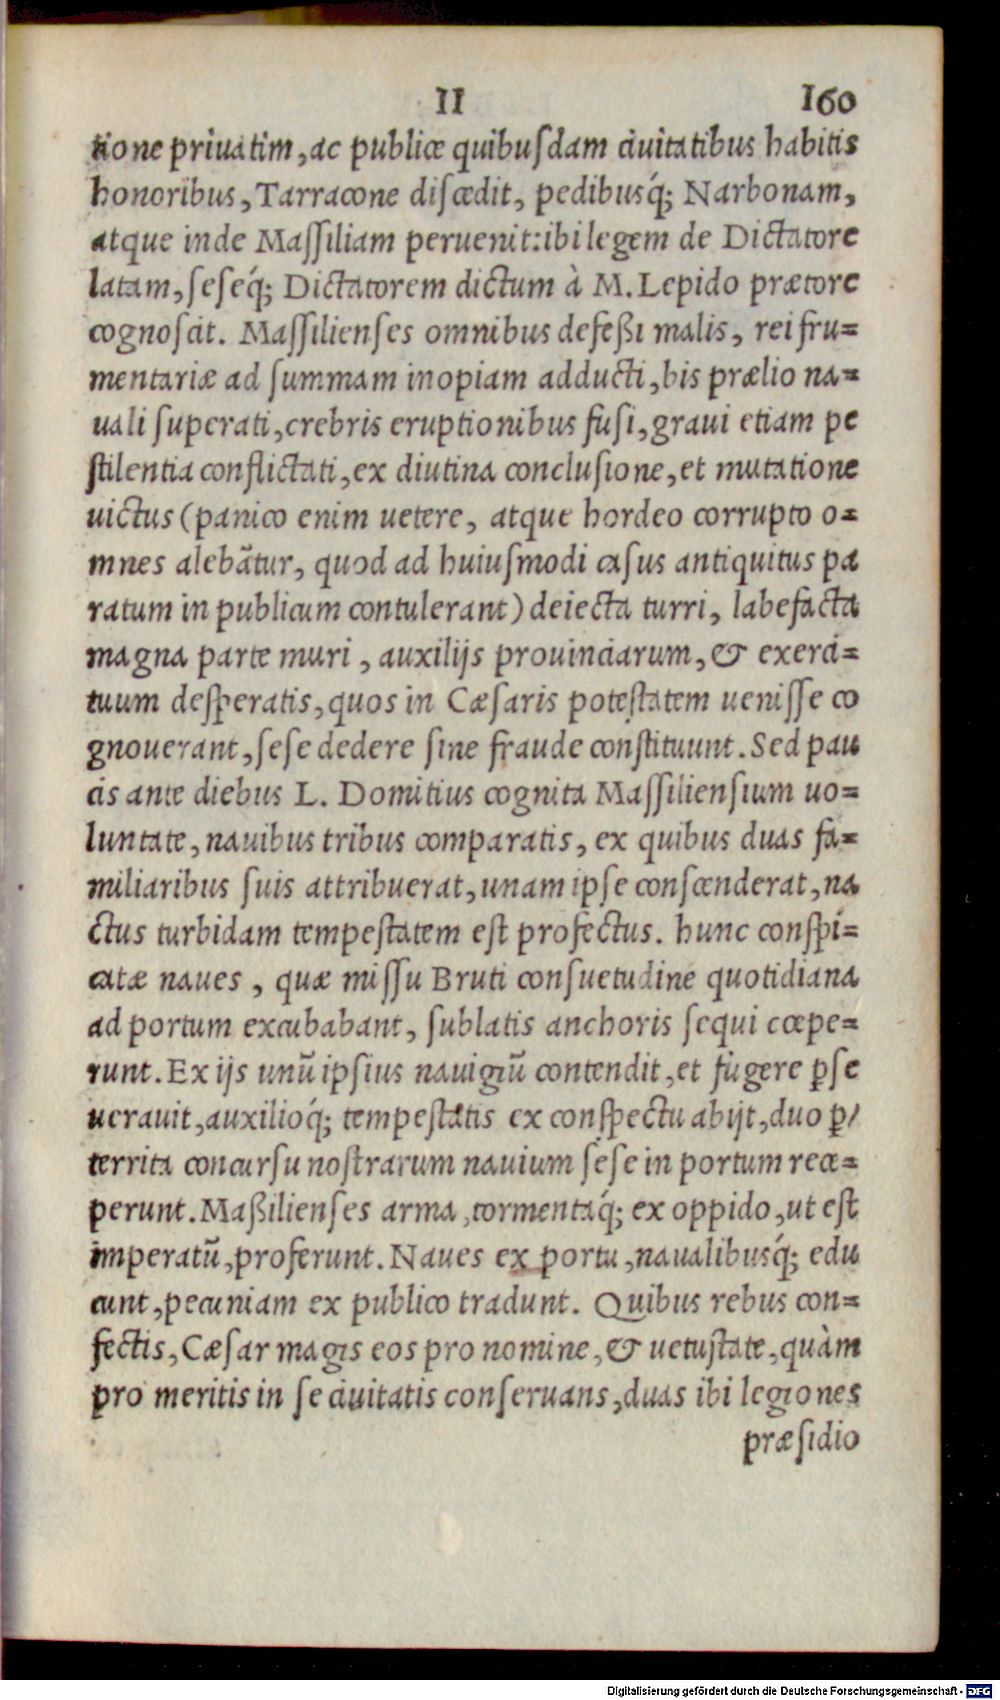 II 160
tione priuatim, ac publice quibusdam ciuitatibus habitis
honoribus, Tarracone discedit, pedibusq́; Narbonam,
atque inde Maſſiliam peruenit: ibi legem de Dictatore
latam, ſeſeq́; Dictatorem dictum à M. Lepido prætore
cognoſcit. Maſſilienſes omnibus defeßi malis, rei fru=
mentariæ ad ſummam inopiam adducti, bis prælio na=
uali ſuperati, crebris eruptionibus fuſi, graui etiam pe
ſtilentia conflictati, ex diutina concluſione, et mutatione
uictus (panico enim uetere, atque hordeo corrupto o=
mnes alebãtur, quod ad huiuſmodi caſus antiquitus pa
ratum in publicum contulerant) deiecta turri, labefacta
magna parte muri, auxilijs prouinciarum, & exerci=
tuum deſperatis, quos in Cæſaris poteſtatem ueniſſe co
gnouerant, ſeſe dedere ſine fraude conſtituunt. Sed pau
cis ante diebus L. Domitius cognita Maſſilienſium uo=
luntate, nauibus tribus comparatis, ex quibus duas fa=
miliaribus ſuis attribuerat, unam ipſe conſcenderat, na
ctus turbidam tempeſtatem eſt profectus. hunc conſpi=
catæ naues, quæ miſſu Bruti conſuetudine quotidiana
ad portum excubabant, ſublatis anchoris ſequi cœpe=
runt. Ex ijs unũ ipſius nauigiũ contendit, et fugere ꝑſe
uerauit, auxilioq́; tempeſtatis ex conſpectu abijt, duo ꝑ/
territa concurſu noſtrarum nauium ſeſe in portum rece=
perunt. Maßilienſes arma, tormentaq́; ex oppido, ut eſt
imperatũ, proferunt. Naues ex portu, naualibusq́; edu
cunt, pecuniam ex publico tradunt. Quibus rebus con=
fectis, Cæſar magis eos pro nomine, & uetuſtate, quàm
pro meritis in ſe ciuitatis conſeruans, duas ibi legiones
præſidio
Digitalisierung gefördert durch die Deutsche Forschungsgemeinschaft - DFG